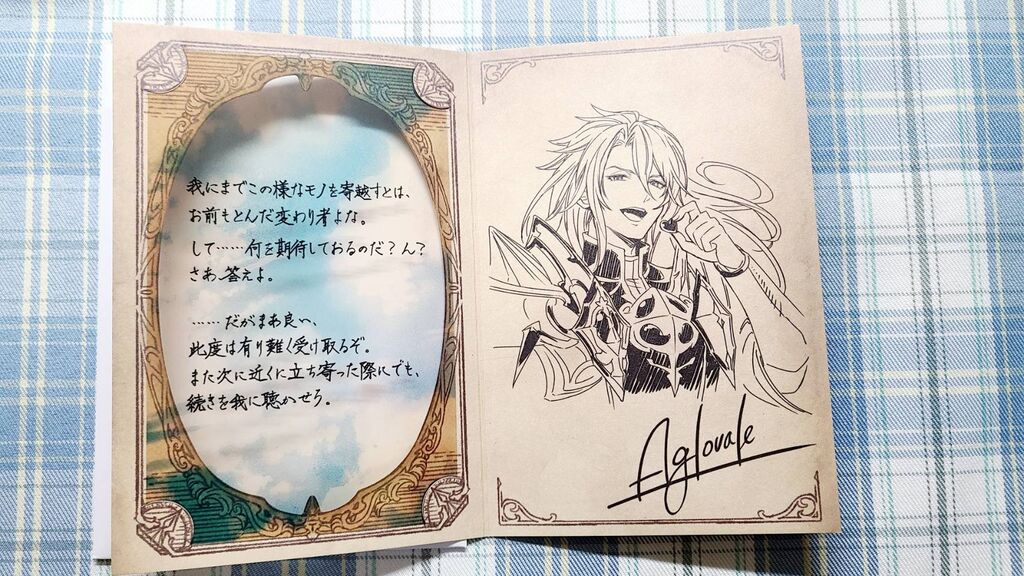 我にまでこの様なモノを寄越すとは、
お前もとんだ変わり者よな。
して……何を期待しておるのだ？ん？
さあ、答えよ。
……だがまあ良い、
此度は有り難く受け取るぞ。
また次に近くに立ち寄った際にでも、
続きを我に聴かせろ。
Aglovale